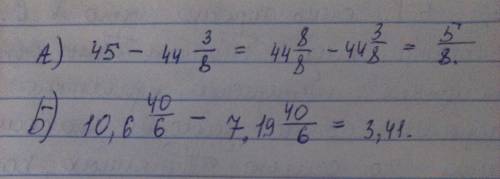 А) 45 - 44 3/8 = 44 8/8 - 44 3/8 = 5/8.
Б) 10,6 40/6 - 7,19 40/6 = 3,41.